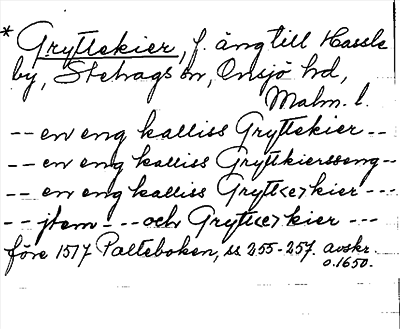 * Gryttekier, f. äng till Hassle
by, Stehags sn, Onsjö hd,
Malm. l.
-- en eng kalliss Gryttekier --
-- en eng kalliss Gryttkiersseng --
-- en eng kalliss Grytt<e>kier ---
-- jtem --- och Grytt<e>kier ---
före 1517 Palteboken, ss 255-257. avskr.
o. 1650.